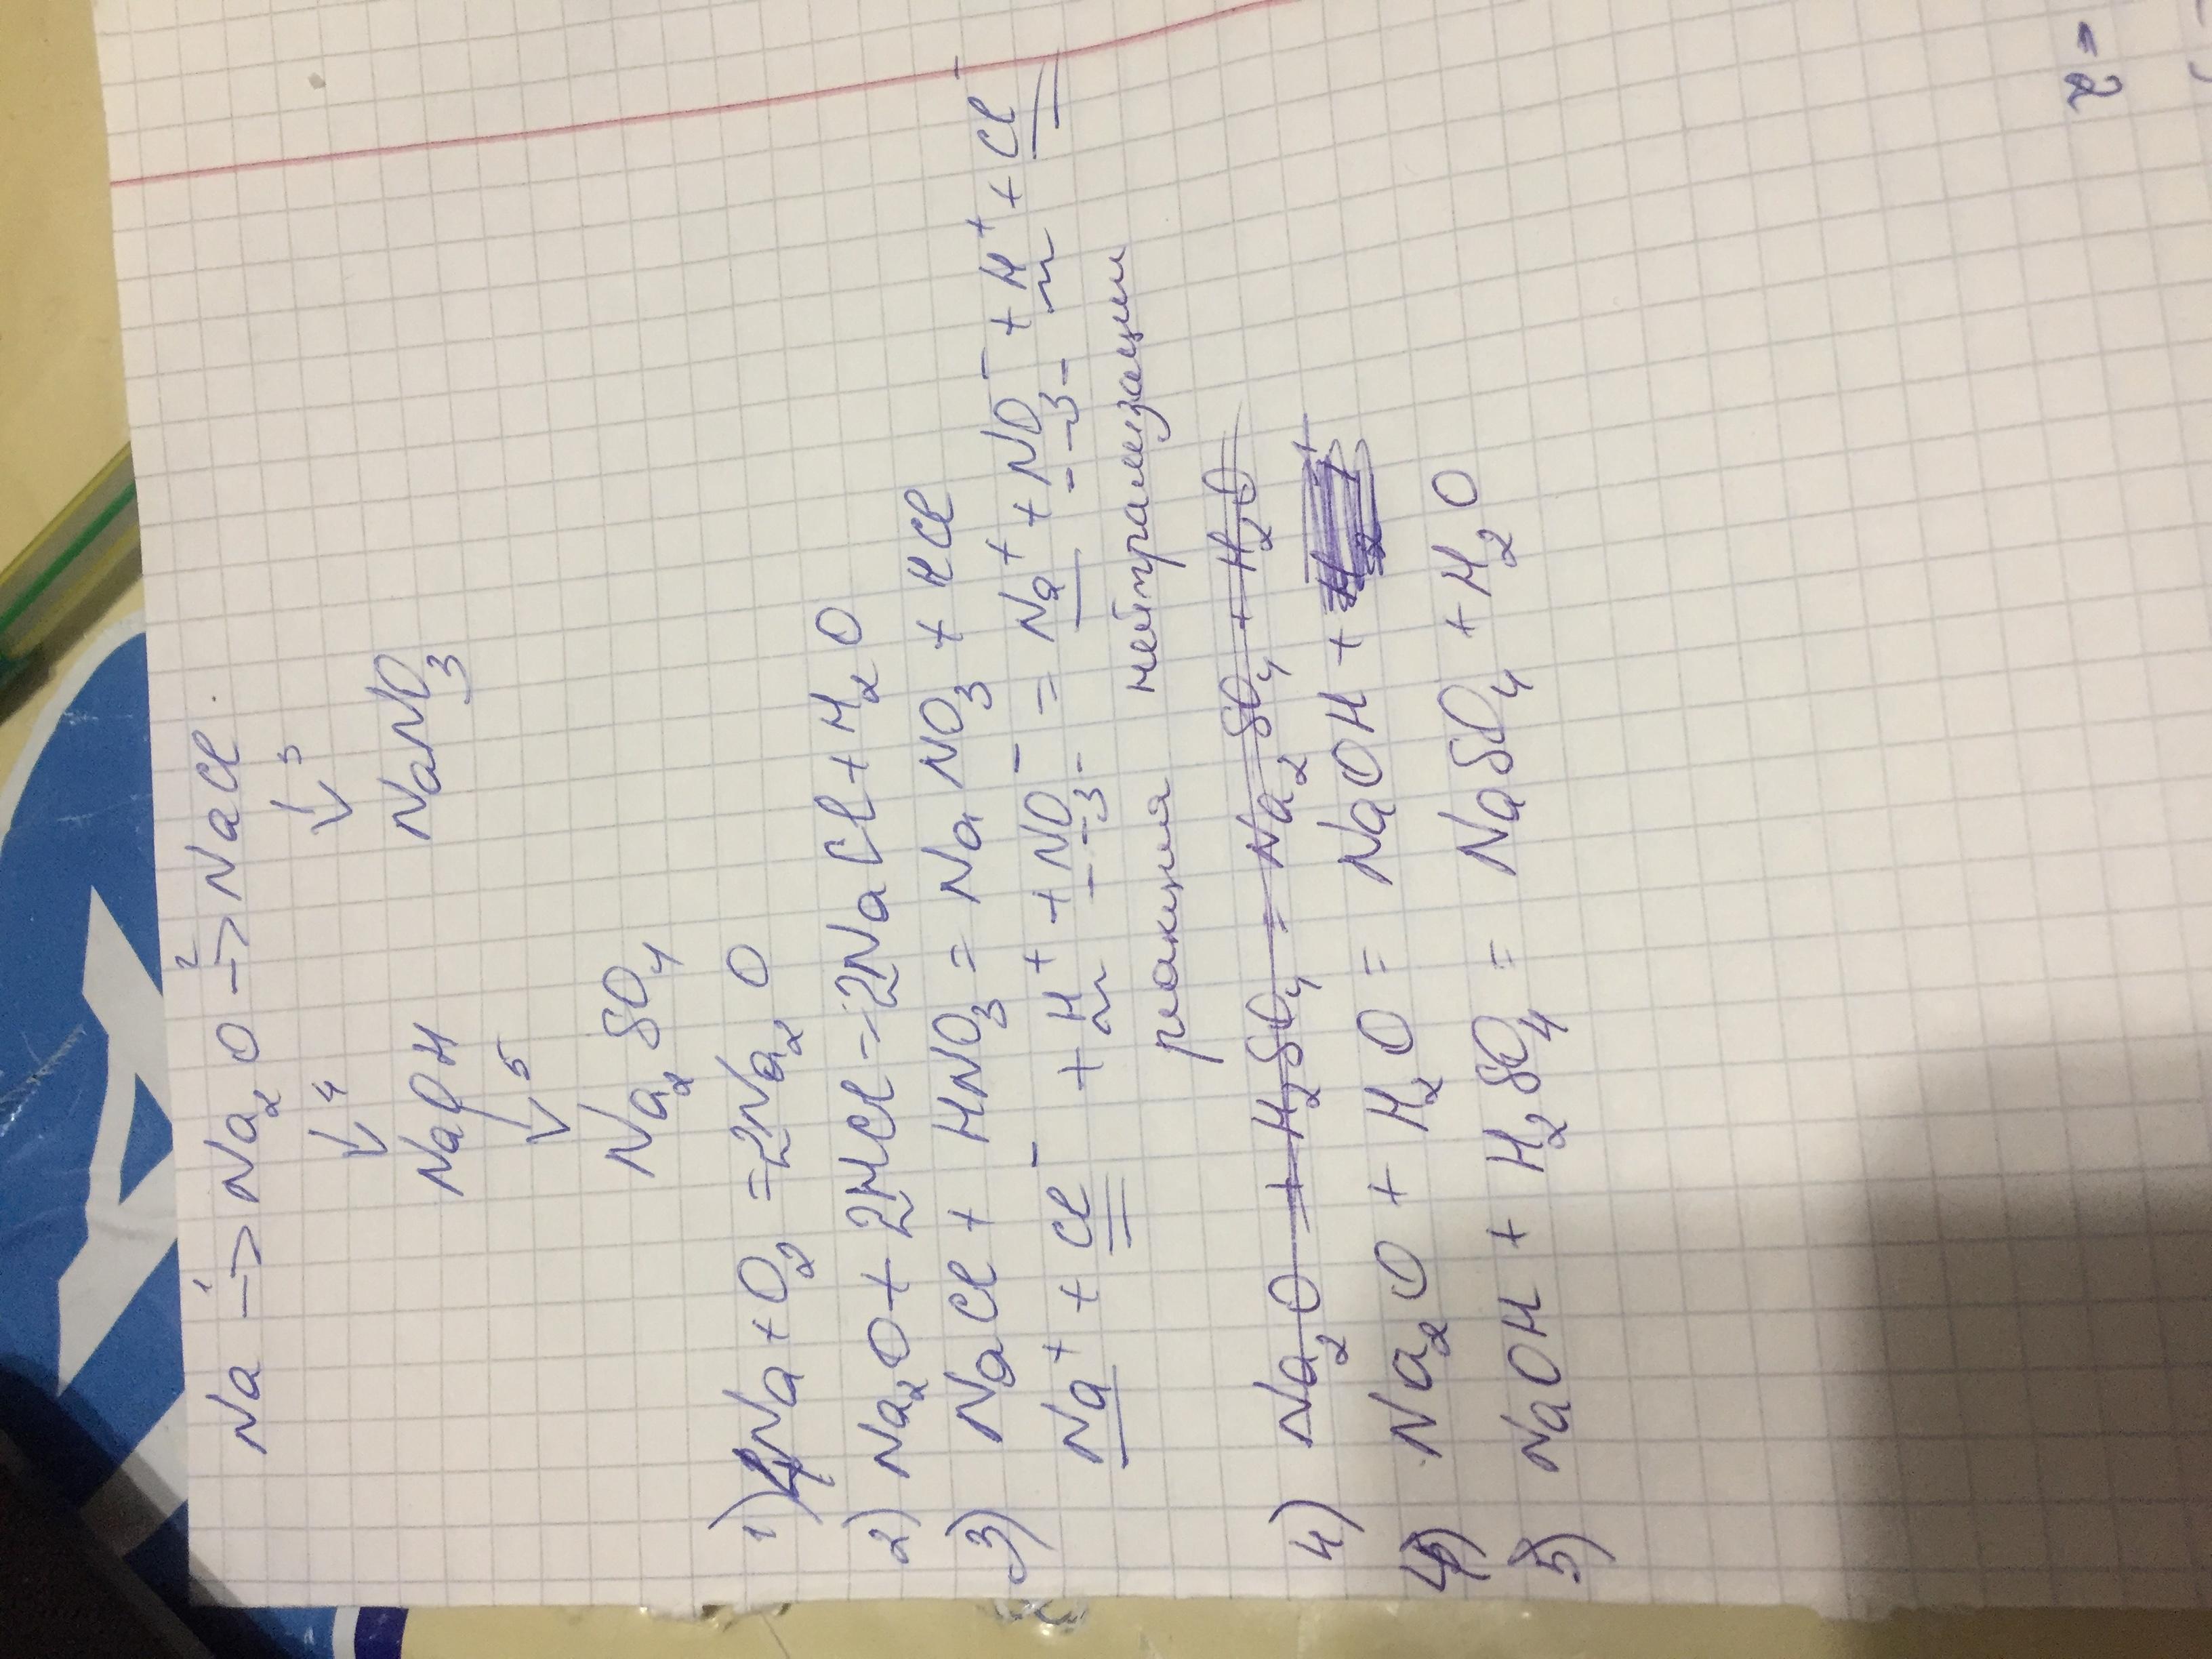 Na -¹-> Na₂O -²-> NaCl.
↓4 ↓3
NaOH NaNO₃
↓5
Na₂SO₄
1) 4Na + O₂ = 2Na₂O
2) Na₂O + 2HCl = 2NaCl + H₂O
3) NaCl + HNO₃ = NaNO₃ + HCl
Na⁺ + Cl⁻ + H⁺ + NO₃⁻ = Na⁺ + NO₃⁻ + H⁺ + Cl⁻
реакция нейтрализации
4) Na₂O + H₂SO₄ = Na₂SO₄ + H₂O
4) Na₂O + H₂O = NaOH +
5) NaOH + H₂SO₄ = NaSO₄ + H₂O
2 =